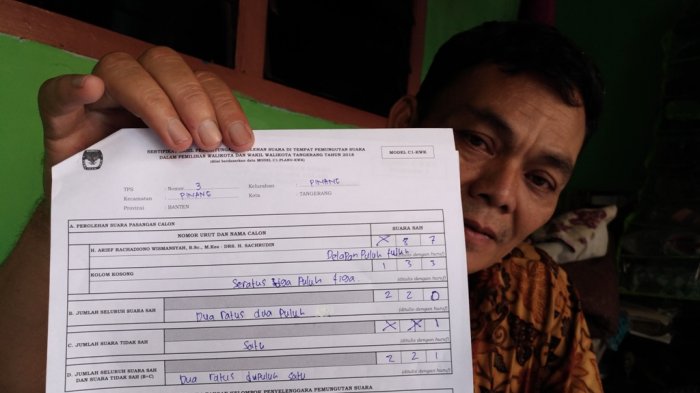 SERTIFIKAT HASIL PENGHITUNGAN PEROLEHAN SUARA DI TEMPAT PEMUNGUTAN SUARA
DALAM PEMILIHAN WALIKOTA DAN WAKIL WALIKOTA TANGERANG TAHUN 2018
(diisi berdasarkan data MODEL C1.PLANO-KWK)
MODEL C1-KWK
TPS : Nomor 3 Kelurahan : PINANG
Kecamatan : PINANG Kota : TANGERANG
Provinsi : BANTEN
A. PEROLEHAN SUARA PASANGAN CALON
NOMOR URUT DAN NAMA CALON SUARA SAH
H. ARIEF RACHADIONO WISMANSYAH, B.Sc., M.Kes - DRS. H. SACHRUDIN X 8 7
Delapan Puluh tujuh (ditulis dengan huruf)
KOLOM KOSONG 1 3 3
Seratus tiga Puluh tiga. (ditulis dengan huruf)
B. JUMLAH SELURUH SUARA SAH 2 2 0
Dua ratus dua Puluh (ditulis dengan huruf)
C. JUMLAH SUARA TIDAK SAH X X 1
Satu (ditulis dengan huruf)
D. JUMLAH SELURUH SUARA SAH DAN SUARA TIDAK SAH (B+C) 2 2 1
Dua ratus dupuluh satu (ditulis dengan huruf)
KELOMPOK PENYELENGGARA PEMUNGUTAN SUARA